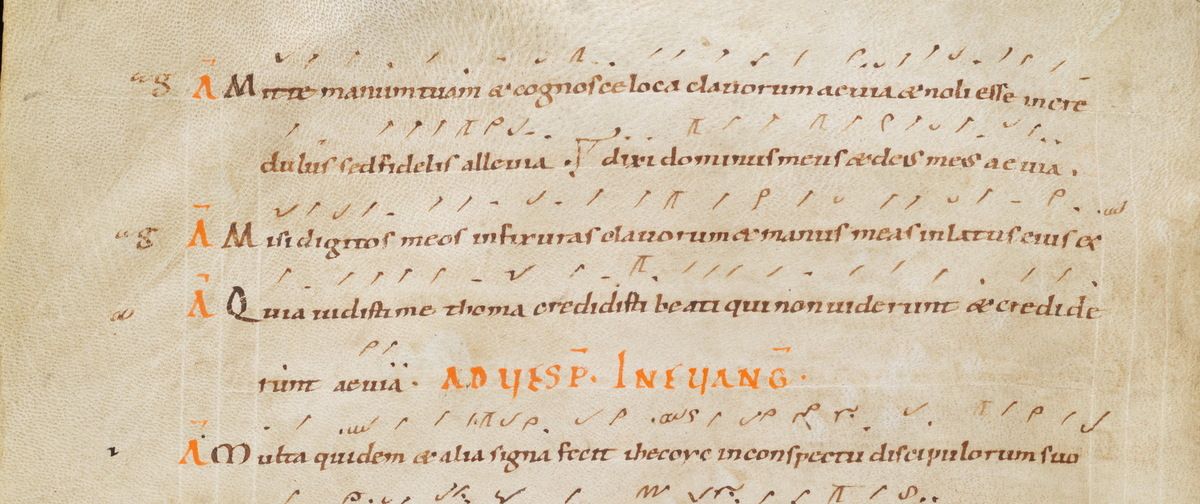 ag A Mitte manum tuam & cognosce loca clauorum aeuia & noli esse incre
dulus sed fidelis alleuia . dixi dominus meus & deus meus aeuia .
ag A Misi digitos meos in fixuras clauorum & manus meas in latus eius &
A Quia uidisti me thoma credidisti beati qui non uiderunt & credide
runt aeuia . AD UESP. IN EUANG .
A Multa quidem & alia signa fecit in conspectu discipulorum suo